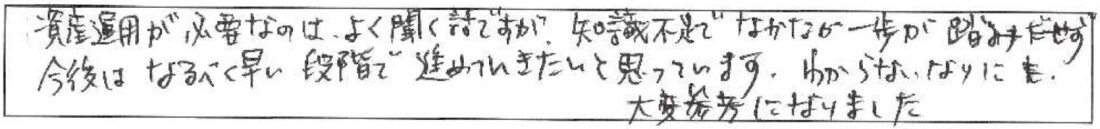 資産運用が必要なのは、よく聞く話ですが、知識不足でなかなか一歩が踏みだせず
今後はなるべく早い段階で進めていきたいと思っています。わからないなりにも、
大変参考になりました